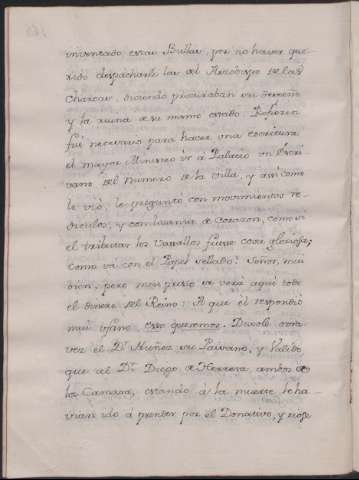 inventado estas Bullas, por no haver que-
rido despacharle las del Arzobispo de las
Charcas, diciendo procuraban su
y la ruina de su mismo estado.
fué necesario para hacer una escritura
el mayor Ministro ir a Palacio un Escri-
vano del Numero de la Villa, y assi como
le vió, le preguntó con movimientos re-
diculos, y con de Corazon, como si
el tributar los Vassallos fuesse cosa gloriosa;
Como vá con el Papel sellado? Señor, mui
bien, pero mui presto se verá aqui todo
el dinero del Reino: A que el respondió
mui ufano, esso queremos. Dixole otra
vez el Dr. Nuñez su Paisano, y Valido
que al Dr. Diego de Herrera, ambos de
la Camara, estando á la muerte le ha-
vian ido á prender por el Donativo, y